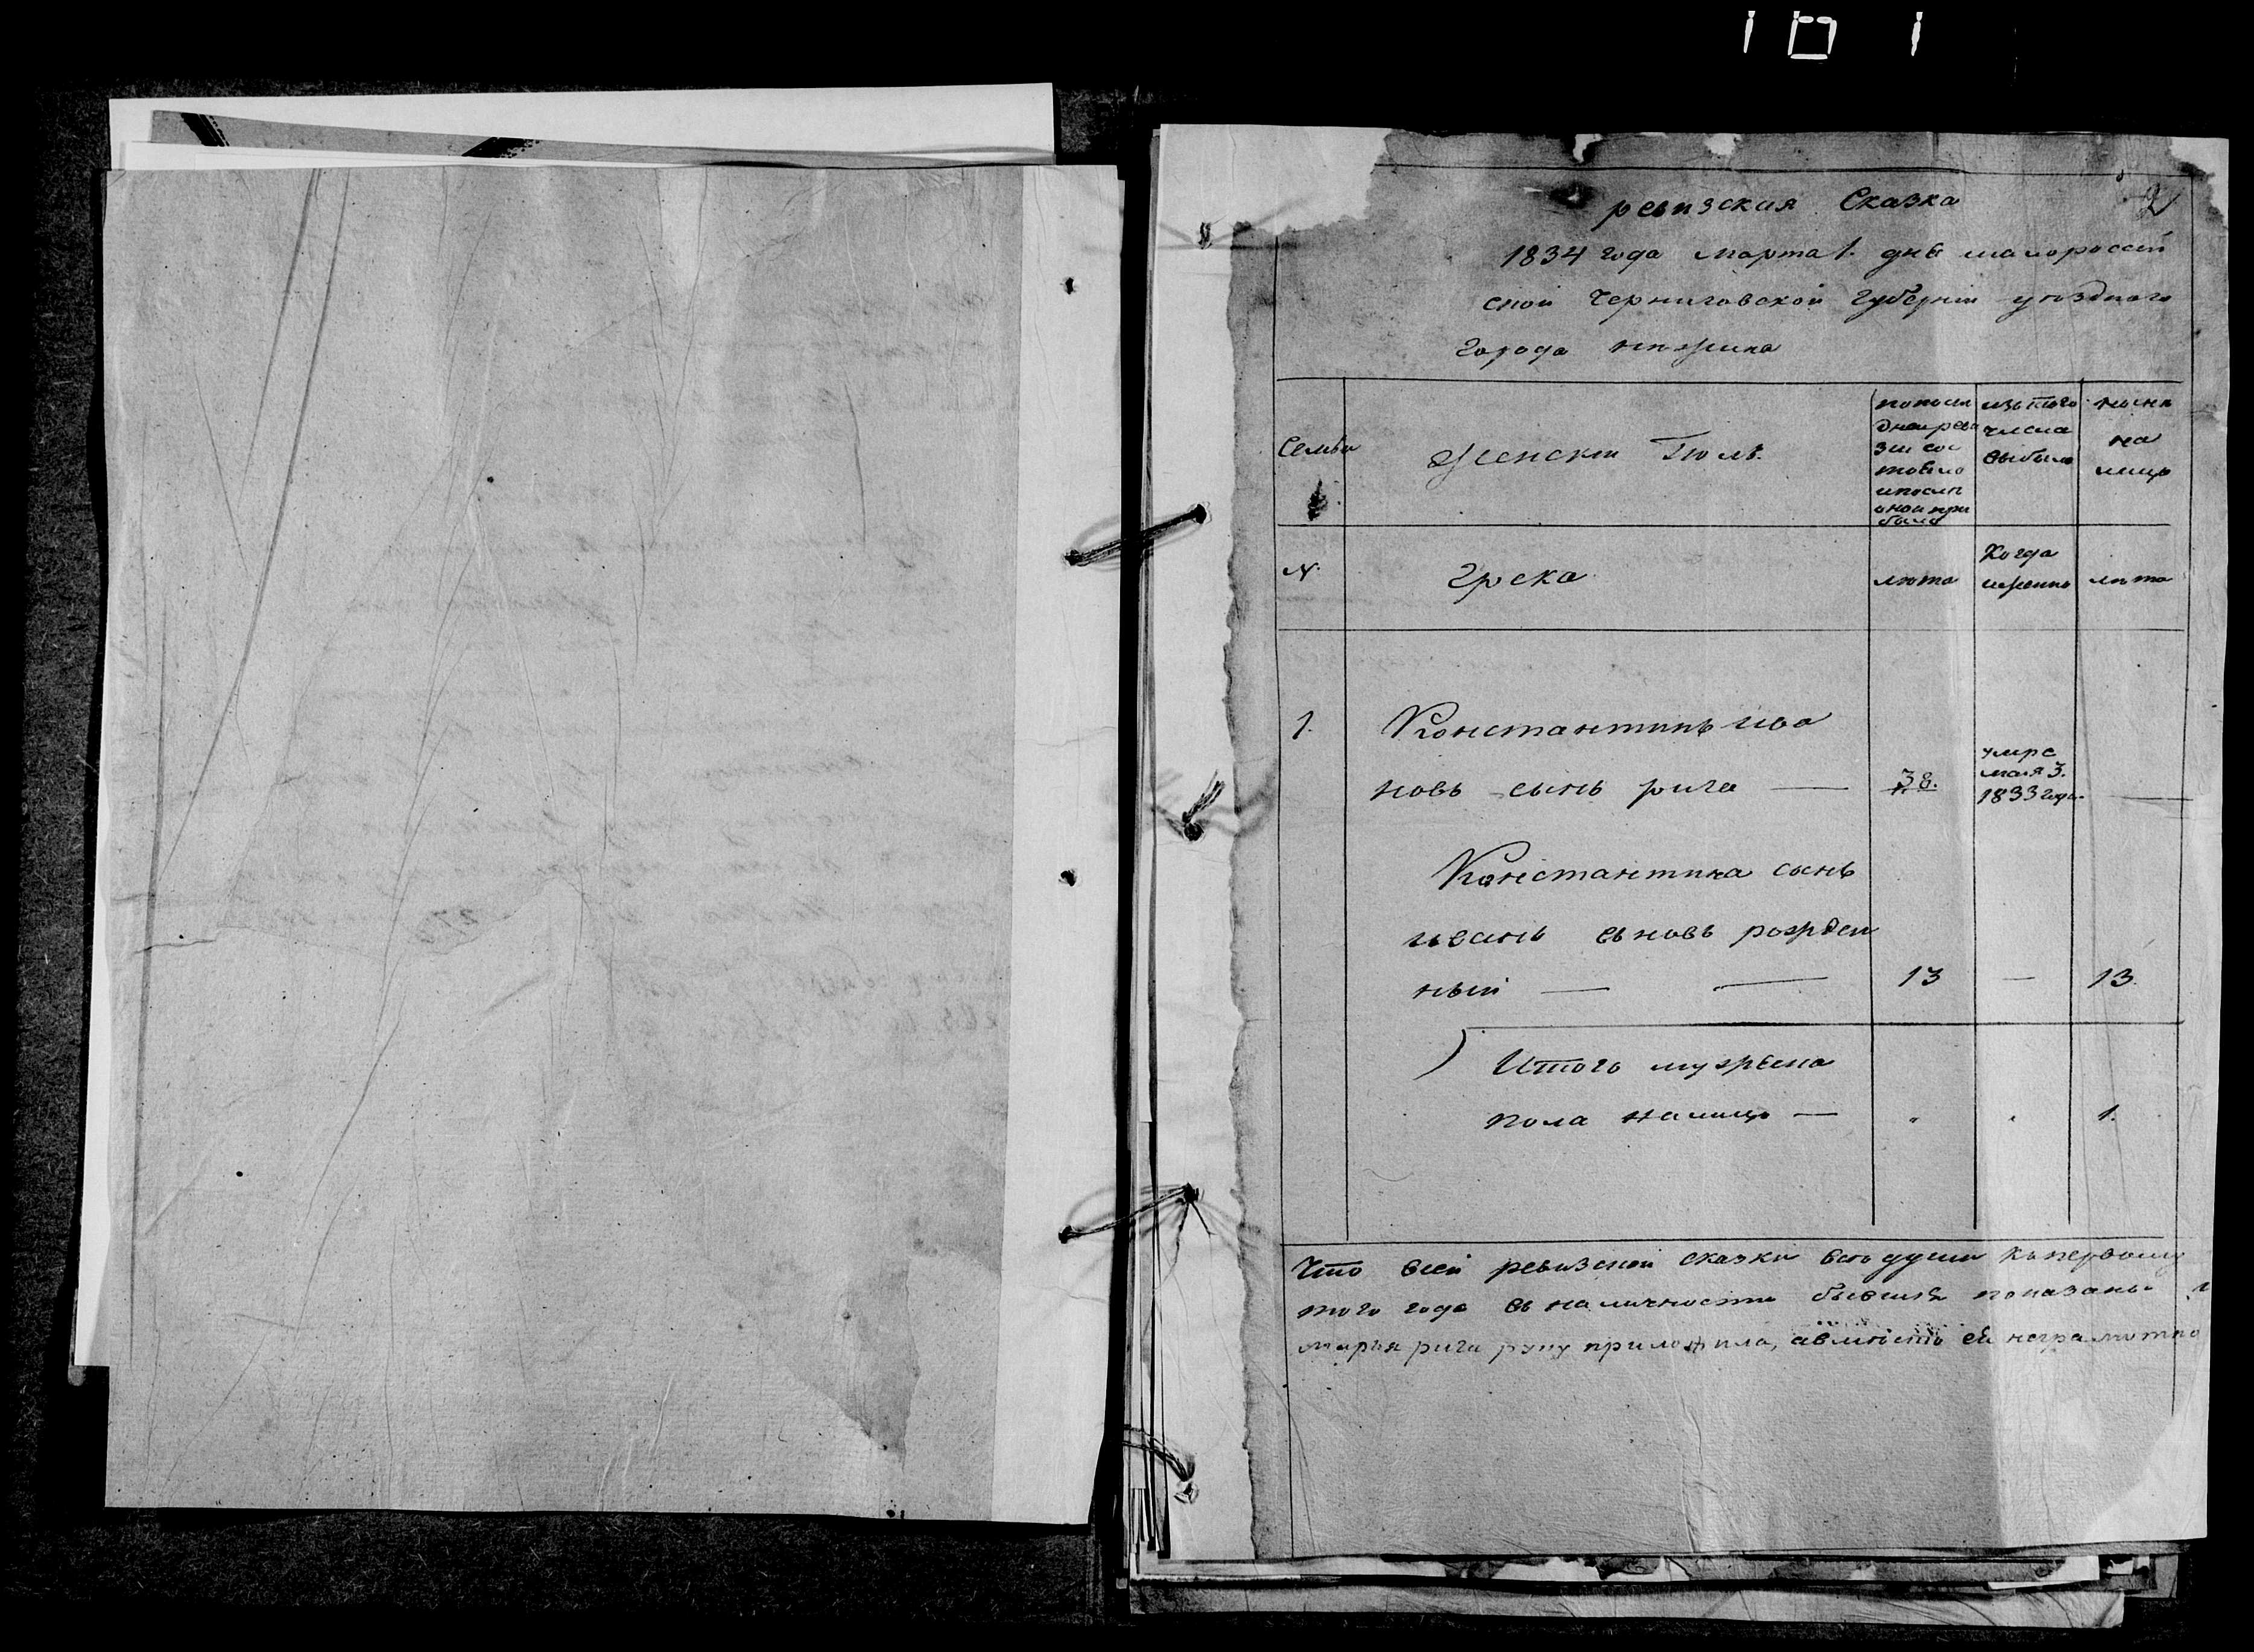 101
2
ревизская Сказка
1834 года марта 1. дня малороссій
ской Черниговской Губерніи уѣздного
Города нѣжина
Семьи
Женски Полъ.
попосле
дней реви
зіи сос
тояло
ипослѣ
оной при
было
изътого
числа
выбыло
нынѣ
на
лицо
N.
Грека
лѣта
Когда
имянно
лѣта
1.
Константинъ ива
новъ сынъ рига —
38.
умре
мая 3.
1833 года.
—
Константина сынъ
иванъ вновь рожден
ный — —
13
—
13.
Итого мужеска
пола налицо —
"
"
1.
Что всей ревизской сказки всѣ души къпервому
того года въ наличности бывшия показаны
марья рига руку приложила, авмѣсто ей неграмотно